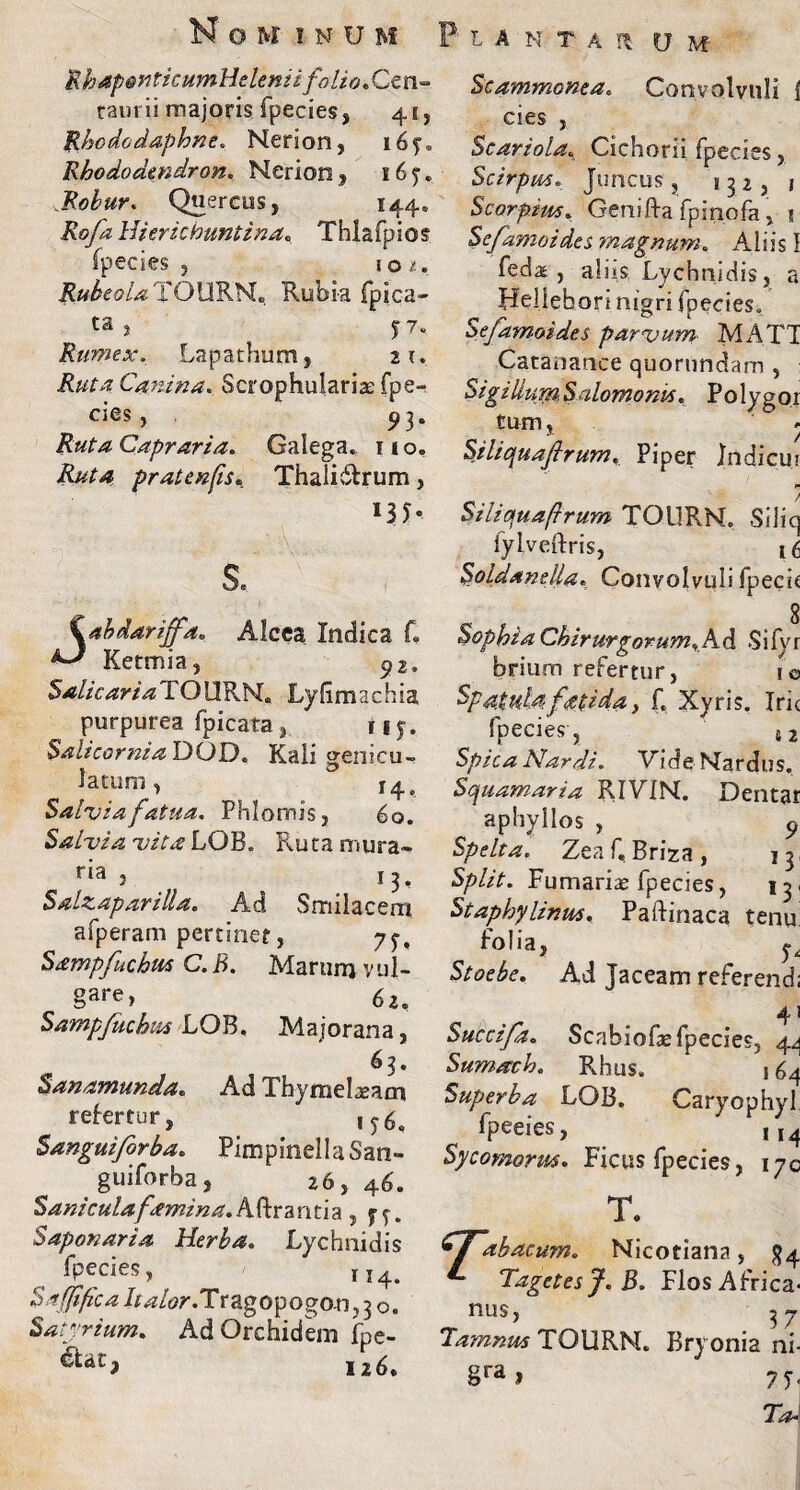 NOMINUM PLANTARUM
RhaponticumHelenii folio. Cen-
taurii majoris ſpecies, 41,
Rhododaphne. Nerion, 165.
Rhododendron. Nerion, 165.
Robur. Quercus, 144.
Roſa Hierichuntina. Thlaſpios
ſpecies, 102.
Rubeola TOURN. Rubia ſpica-
ta, 57.
Rumex. Lapathum, 21.
Ruta Canina. Scrophulariæ ſpe-
cies, 93.
Ruta Capraria. Galega. 110.
Ruta pratenſis. Thalictrum,
135.
S.
Sabdariffa. Alcea Indica ſ.
Ketmia, 92.
Salicaria TOURN. Lyſimachia
purpurea ſpicata, 115.
Salicornia DOD. Kali genicu-
latum, 14.
Salvia fatua. Phlomis, 60.
Salvia vitæ LOB. Ruta mura-
ria, 13.
Salzaparilla. Ad Smilacem
aſperam pertinet, 75.
Sæmpſuchus C. B. Marum vul-
gare, 62.
Sampſuchus LOB. Majorana,
63.
Sanamunda. Ad Thymelæam
refertur, 156.
Sanguiſorba. Pimpinella San-
guiſorba, 26, 46.
Sanicula fæmina. Aſtrantia, 55.
Saponaria Herba. Lychnidis
ſpecies, 114.
Saſſifica Italor. Tragopogon, 30.
Satyrium. Ad Orchidem ſpe-
ctat, 126.
Scammonea. Convolvuli ſ
cies,
Scariola. Cichorii ſpecies,
Scirpus. Juncus, 132, 1
Scorpius. Geniſta ſpinoſa, 1
Seſamoides magnum. Aliis
ſedæ, aliis Lychnidis, a
Hellebori nigri ſpecies.
Seſamoides parvum MATT
Catanance quorundam,
Sigillum Salomonis. Polygo
tum,
Siliquaſtrum. Piper Indicu
7
Siliquaſtrum TOURN. Siliq
ſylveſtris, 16
Soldanella. Convolvuli ſpecie
8
Sophia Chirurgorum. Ad Siſy
brium refertur, 10
Spatula fætida, ſ. Xyris. Iri
ſpecies, 12
Spica Nardi. Vide Nardus.
Squamaria RIVIN. Dentar
aphyllos, 9
Spelta. Zea ſ. Briza, 13
Split. Fumariæ ſpecies, 13
Staphylinus. Paſtinaca tenu
folia, 5
Stoebe. Ad Jaceam referend
4
Succiſa. Scabioſæ ſpecies, 44
Sumach. Rhus. 164
Superba LOB. Caryophyl
ſpecies, 114
Sycomorus. Ficus ſpecies, 170
T.
Tabacum. Nicotiana, 84
Tagetes J. B. Flos Africa-
nus, 37
Tamnus TOURN. Bryonia ni-
gra, 75.
Ta-